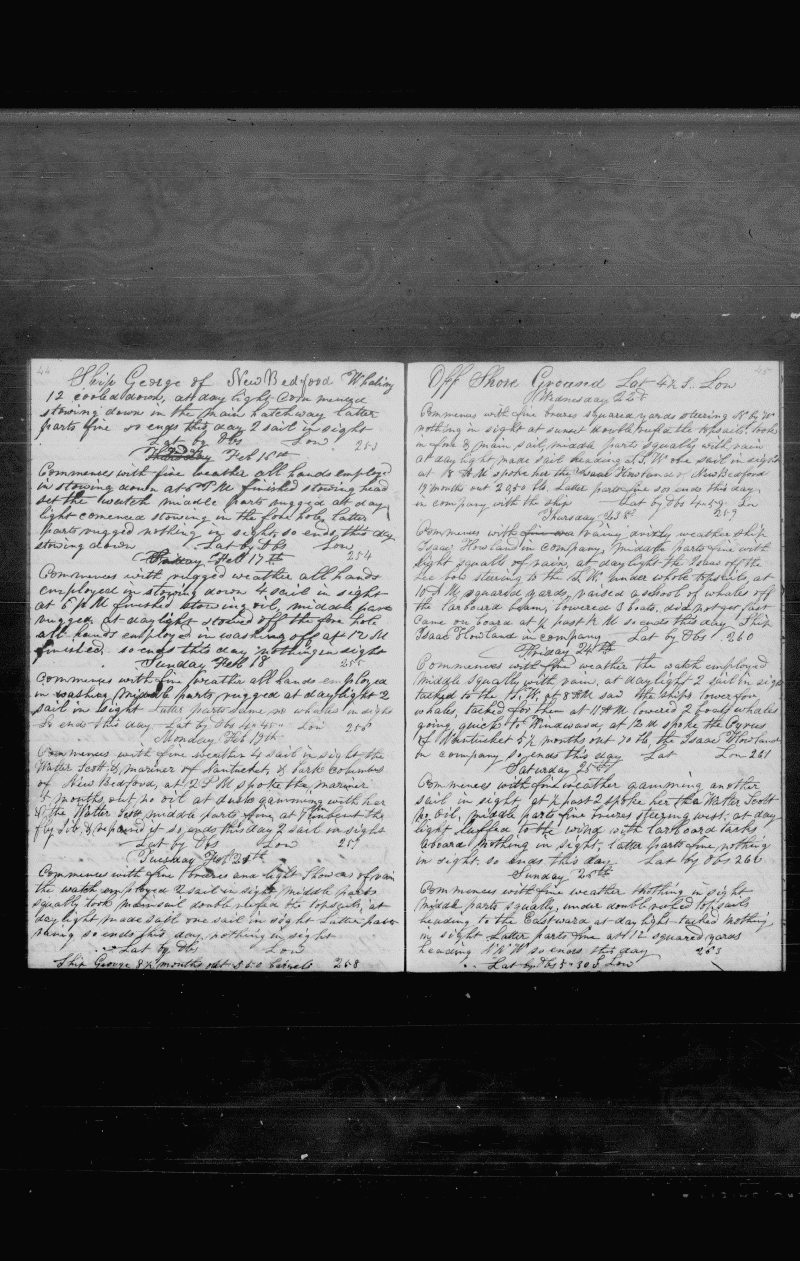 44
Ship George of New Bedford Whaling
12 cooled down, at day light Commenced
stowing down in the main hatchway latter
parts fine so ends this day 2 sail in sight
Lat by Obs Lon 253
Feb 16th
Commences with fine weather all hands employd
in stowing down at 6 P M finished stowing head
set the watch middle parts rugged at day
light comenced stowing in the fore hole, latter
parts rugged nothing in sight, so ends this day
stowing down Lat by Obs Lon
Feb 17th 254
Commences with rugged weather all hands
employed in stowing down 4 sail in sight
at 6 P M finished stowing oil, middle parts
rugged, at daylight stowed off the fore hole
all hands employed in washing off at 12 M
finished. so ends this day nothing in sight
Sunday Feb 18 255
Commences with fine weather all hands employed
in washing, middle parts rugged at daylight 2
sail in sight Latter parts same no whales in sight
So ends this day Lat by Obs 4=45= Lon 256
Monday Feb 19th
Commences with fine weather 4 sail in sight the
Walter Scott & mariner of Nantucket, & bark Columbus
of New Bedford, at 2 P M spoke the mariner
5 months out, no oil at dusk gamming with her
& the Walter Scott middle parts fine, at 7 unbent the
fly Jib, & repaired it so, ends this day 2 sail in sight
Lat by Obs Lon 257
Tuesday Feb 20th
Commences with fine breezes and light Showers of rain
the watch employed 2 sail in sight, middle parts
squally took mainsail double reefed the topsails, at
day light made sail one sail in sight Latter parts
so ends this day, nothing in sight
Lat by Obs Lon
Ship George 8½ months out 850 barrels 258
45
Off Shore Ground Lat 4½ S.. Lon
Wednesday 22d
Commences with fine breezes squared yards steering N by W
nothing in sight at sunset double reefed the topsails, took
in fore & main sail, middle parts squally with rain
at day light, made sail heading S. W one sail in sight
at 8 A M spoke her the Isaac Howland of New Bedford
19 months out 2050 bbls. Latter parts fine so ends this day
in company with the ship Lat by Obs 4=59= Lon
Thursday 23d 259
Commences with rainy drizly weather ship
Isaac Howland in company, middle parts fine with
light squalls of rain, at day light the Isaac off the
Lee bow steering to the S. W. under whole topsails, at
10 A M squared yards, raised a school of whales off
the larboard beam, lowered 3 boats, did not get fast
came on board at ½ past M so ends this day Ship
Isaac Howland in company Lat by Obs 260
Friday 24th
Commences with fine weather the watch employed
middle squally with rain, at daylight 2 sail in sight
tacked to the W. at 8 A M saw the ships lower for
whales, tacked for them at 11 A M lowered 2 boats whales
going quick to Windward, at 12 M spoke the Cyrus
of Nantucket 5½ months out 70 bbl, the Isaac Howland
in company So ends this day Lat Lon 261
Saturday 25th
Commences with fine weather gamming another
sail in sight at ½ past 2 spoke her the Walter Scott
no oil, middle parts fine breezes steering west, at day
light luffed to the wind with larboard tacks
aboard nothing in sight, latter parts fine nothing
in sight, so ends this day Lat by Obs 262
Sunday 26th
Commences with fine weather nothing in sight
middle parts squally, under double reefed topsails
heading to the Eastward at day light tacked nothing
in sight Latter parts fine at 12 squared yards
heading W so ends this day 263
Lat by Obs 5=30 S. Lon